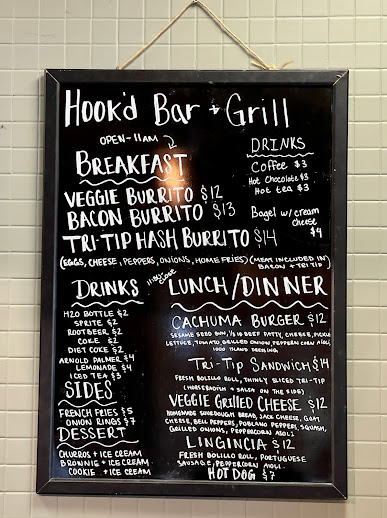 HOOK'D BAR + GRILL
OPEN-11AM
BREAKFAST
VEGGIE BURRITO $12
BACON BURRITO $13
TRI-TIP HASH BURRITO $14
(EGGS, CHEESE, PEPPERS, ONIONS, HOME FRIES) (MEAT INCLUDED IN
BACON + TRI TIP)
DRINKS
Coffee $3
Hot Chocolate $3
Hot tea $3
Bagel w/ cream
cheese
$4
DRINKS
H2O BOTTLE $2
SPRITE $2
ROOTBEER $2
COKE $2
DIET COKE $2
ARNOLD PALMER $4
LEMONADE $4
ICED TEA $3
SIDES
FRENCH FRIES $5
ONION RINGS $7
DESSERT
CHURROS + ICE CREAM
BROWNIE + ICE CREAM
COOKIE + ICE CREAM
LUNCH/DINNER
CACHUMA BURGER $12
SESAME SEED BUN, 1/2 LB BEEF PATTY, CHEESE, PICKLE
LETTUCE, TOMATO GRILLED ONION, PEPPERCORN AIOLI,
1000 ISLAND DRESSING
TRI-TIP SANDWICH $14
FRESH BOLILLO ROLL, THINLY SLICED TRI-TIP
(HORSERADISH + SALSA ON THE SIDE)
VEGGIE GRILLED CHEESE $12
HOMEMADE SOURDOUGH BREAD, JACK CHEESE, GOAT
CHEESE, BELL PEPPERS, POBLANO PEPPERS, SQUASH,
GRILLED ONIONS, PEPPERCORN AIOLI
LINGINCIA $12
FRESH BOLILLO ROLL, PORTUGUESE
SAUSAGE, PEPPERCORN AIOLI.
HOT DOG $7